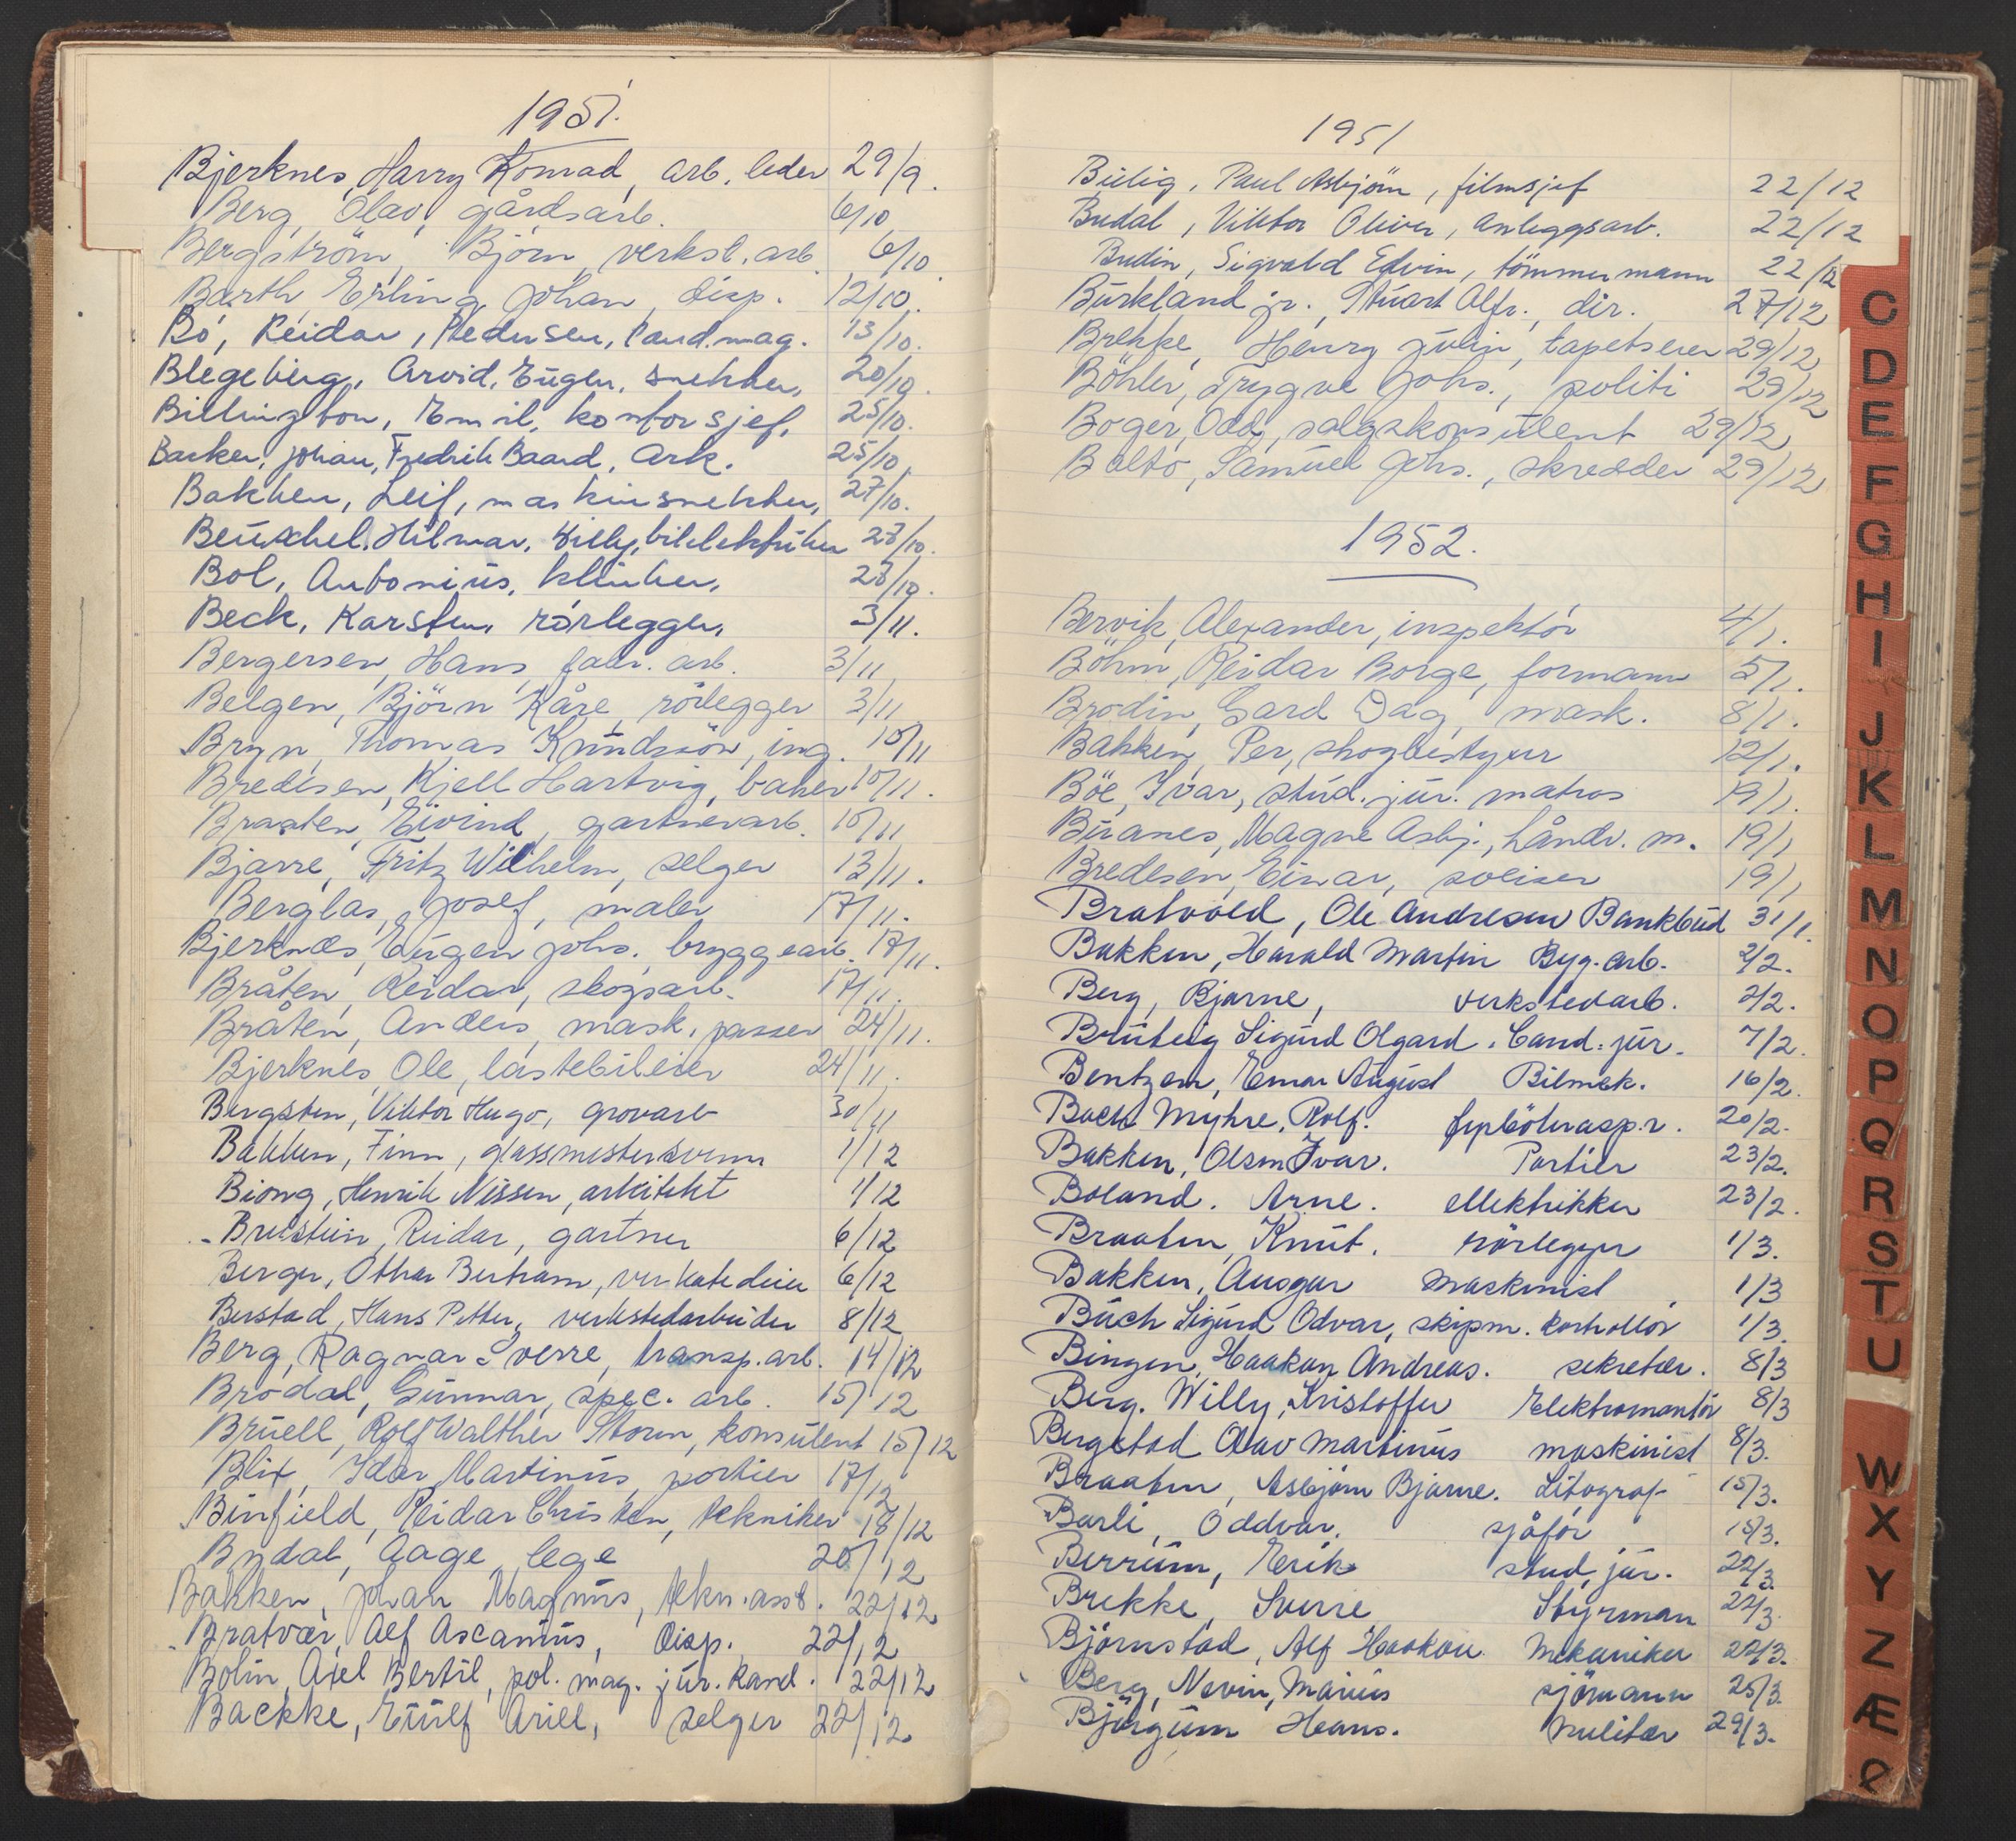 1951.
Bjerknes, Harry Konrad, arb. leder 29/9.
Berg, Olav, gårdsarb. 6/10
Bergström, Björn, verkst. arb. 6/10
Barth, Erling Johan, disp. 12/10.
Bö, Reidar, Pedersen, cand. mag. 13/10.
Blegeberg, Arvid, Eugen, snekker, 20/10.
Billington, Emil, kontorsjef, 25/10.
Barker, Johan, Fredrik Baard, Ark. 25/10,
Bakken, Leif, maskinsnekker, 27/10.
Beuschel, Hilmar, Willy, bilelektriker 28/10.
Bol, Antonius, 28/10.
Beck, Karsten, rörlegger, 3/11.
Bergersen, Hans, fabr. arb. 3/11
Belgen, Björn Kåre, rörlegger 3/11
Bryn, Thomas Knudssön, ing. 10/11
Bredesen, Kjell Hartvig, baker 10/11.
Braaten, Eivind, gartnerarb. 10/11
Bjarre, Fritz Wilhelm, selger 13/11.
Berglas, Josef, maler 17/11.
Bjerknæs, Eugen Johs. bryggearb. 17/11.
Bråten, Reidar, skogsarb. 17/11.
Bråten, Anders, mask. passer 24/11.
Bjerknes, Ole, lastebileier 24/11.
Bergsten, Viktor Hugo, grovarb 30/11
Bakken, Finn, glassmestersvenn 1/12
Biong, Henrik Nissen, arkitekt 1/12
Brustein, Reidar, gartner 6/12
Berger, Othar Bertram, verkstedeier 6/12
Berstad, Hans Petter, verkstedarbeider 8/12
Berg, Ragnar Sverre, transp. arb. 14/12
Brodal, Gunnar, spec. arb. 15/12
Brüell, Rolf Walther Storm, konsulent 15/12
Blix, Idar Martinus, portier 17/12
Binfield, Reidar Christen, tekniker 18/12
Bydal, Aage, lege 20/12
Bakken, Johan Magnus, tekn. asst. 22/12
Bratvær, Alf Ascanius, Disp. 22/12
Bolin, Axel Bertil, pol. mag. jur. kand. 22/12
Backke, Eiulf Ariel, selger 22/12
1951
Bülig, Paul Asbjörn, filmsjef 22/12
Budal, Viktor Oliver, anleggsarb. 22/12
Budin, Sigvald Edvin, tömmermann 22/12
Burkland jr., Stuart Alfr., dir. 27/12
Brekke, Henry Julin, tapetserer 29/12
Böhler, Trygve Johs., politi 29/12
Boger, Odd, salgskonsulent 29/12
Balto, Samuel Johs., skredder 29/12
1952.
Bervik, Alexander, inspektör 4/1.
Böhm, Reidar Borge, formann 5/1.
Brodin, Gard Dag, mask. 8/1.
Bakken, Per, skogbestyrer 12/1.
Böe, Ivar, stud. jur. matros 19/1.
Buanes, Magne Asbj., håndv. m. 19/1
Bredesen, Einar, sveiser 19/1
Bratvold, Ole Andresen Bankbud 31/1.
Bakken, Harald Martin Byg. arb. 2/2.
Berg, Bjarne, verkstedarb. 2/2.
Bruteig Sigurd Olgard. Cand. jur. 7/2.
Bentzen, Einar August Bilmek. 16/2.
Bach Myhre, Rolf. 20/2.
Bakken, Olsen Ivar. Portier 23/2.
Boland. Arne. ellektrikker 23/2.
Braaten, Knut. rörlegger 1/3.
Bakken, Ansgar Maskinist 1/3
Buch Sigurd Odvar, skipm. kontrollör 1/3.
Bingen, Haakon Andreas. sekretær. 8/3
Berg. Willy, Kristoffer Elektromontör 8/3
Bergstad Olav Martinus maskinist 8/3.
Braaten, Asbjörn Bjarne. Litograf 15/3.
Barli, Oddvar. sjåför 15/3.
Berrum, Erik stud. jur. 22/3
Brekke, Sverre Styrman 22/3.
Björnstad, Alf Haakon Mekaniker 22/3.
Berg, Nevin, Marius sjömann 25/3
Björgum Hans. Militær 29/3.
C
D
E
F
G
H
I
J
K
L
M
N
O
P
Q
R
S
T
U
W
X
Y
Z
Æ
Ø